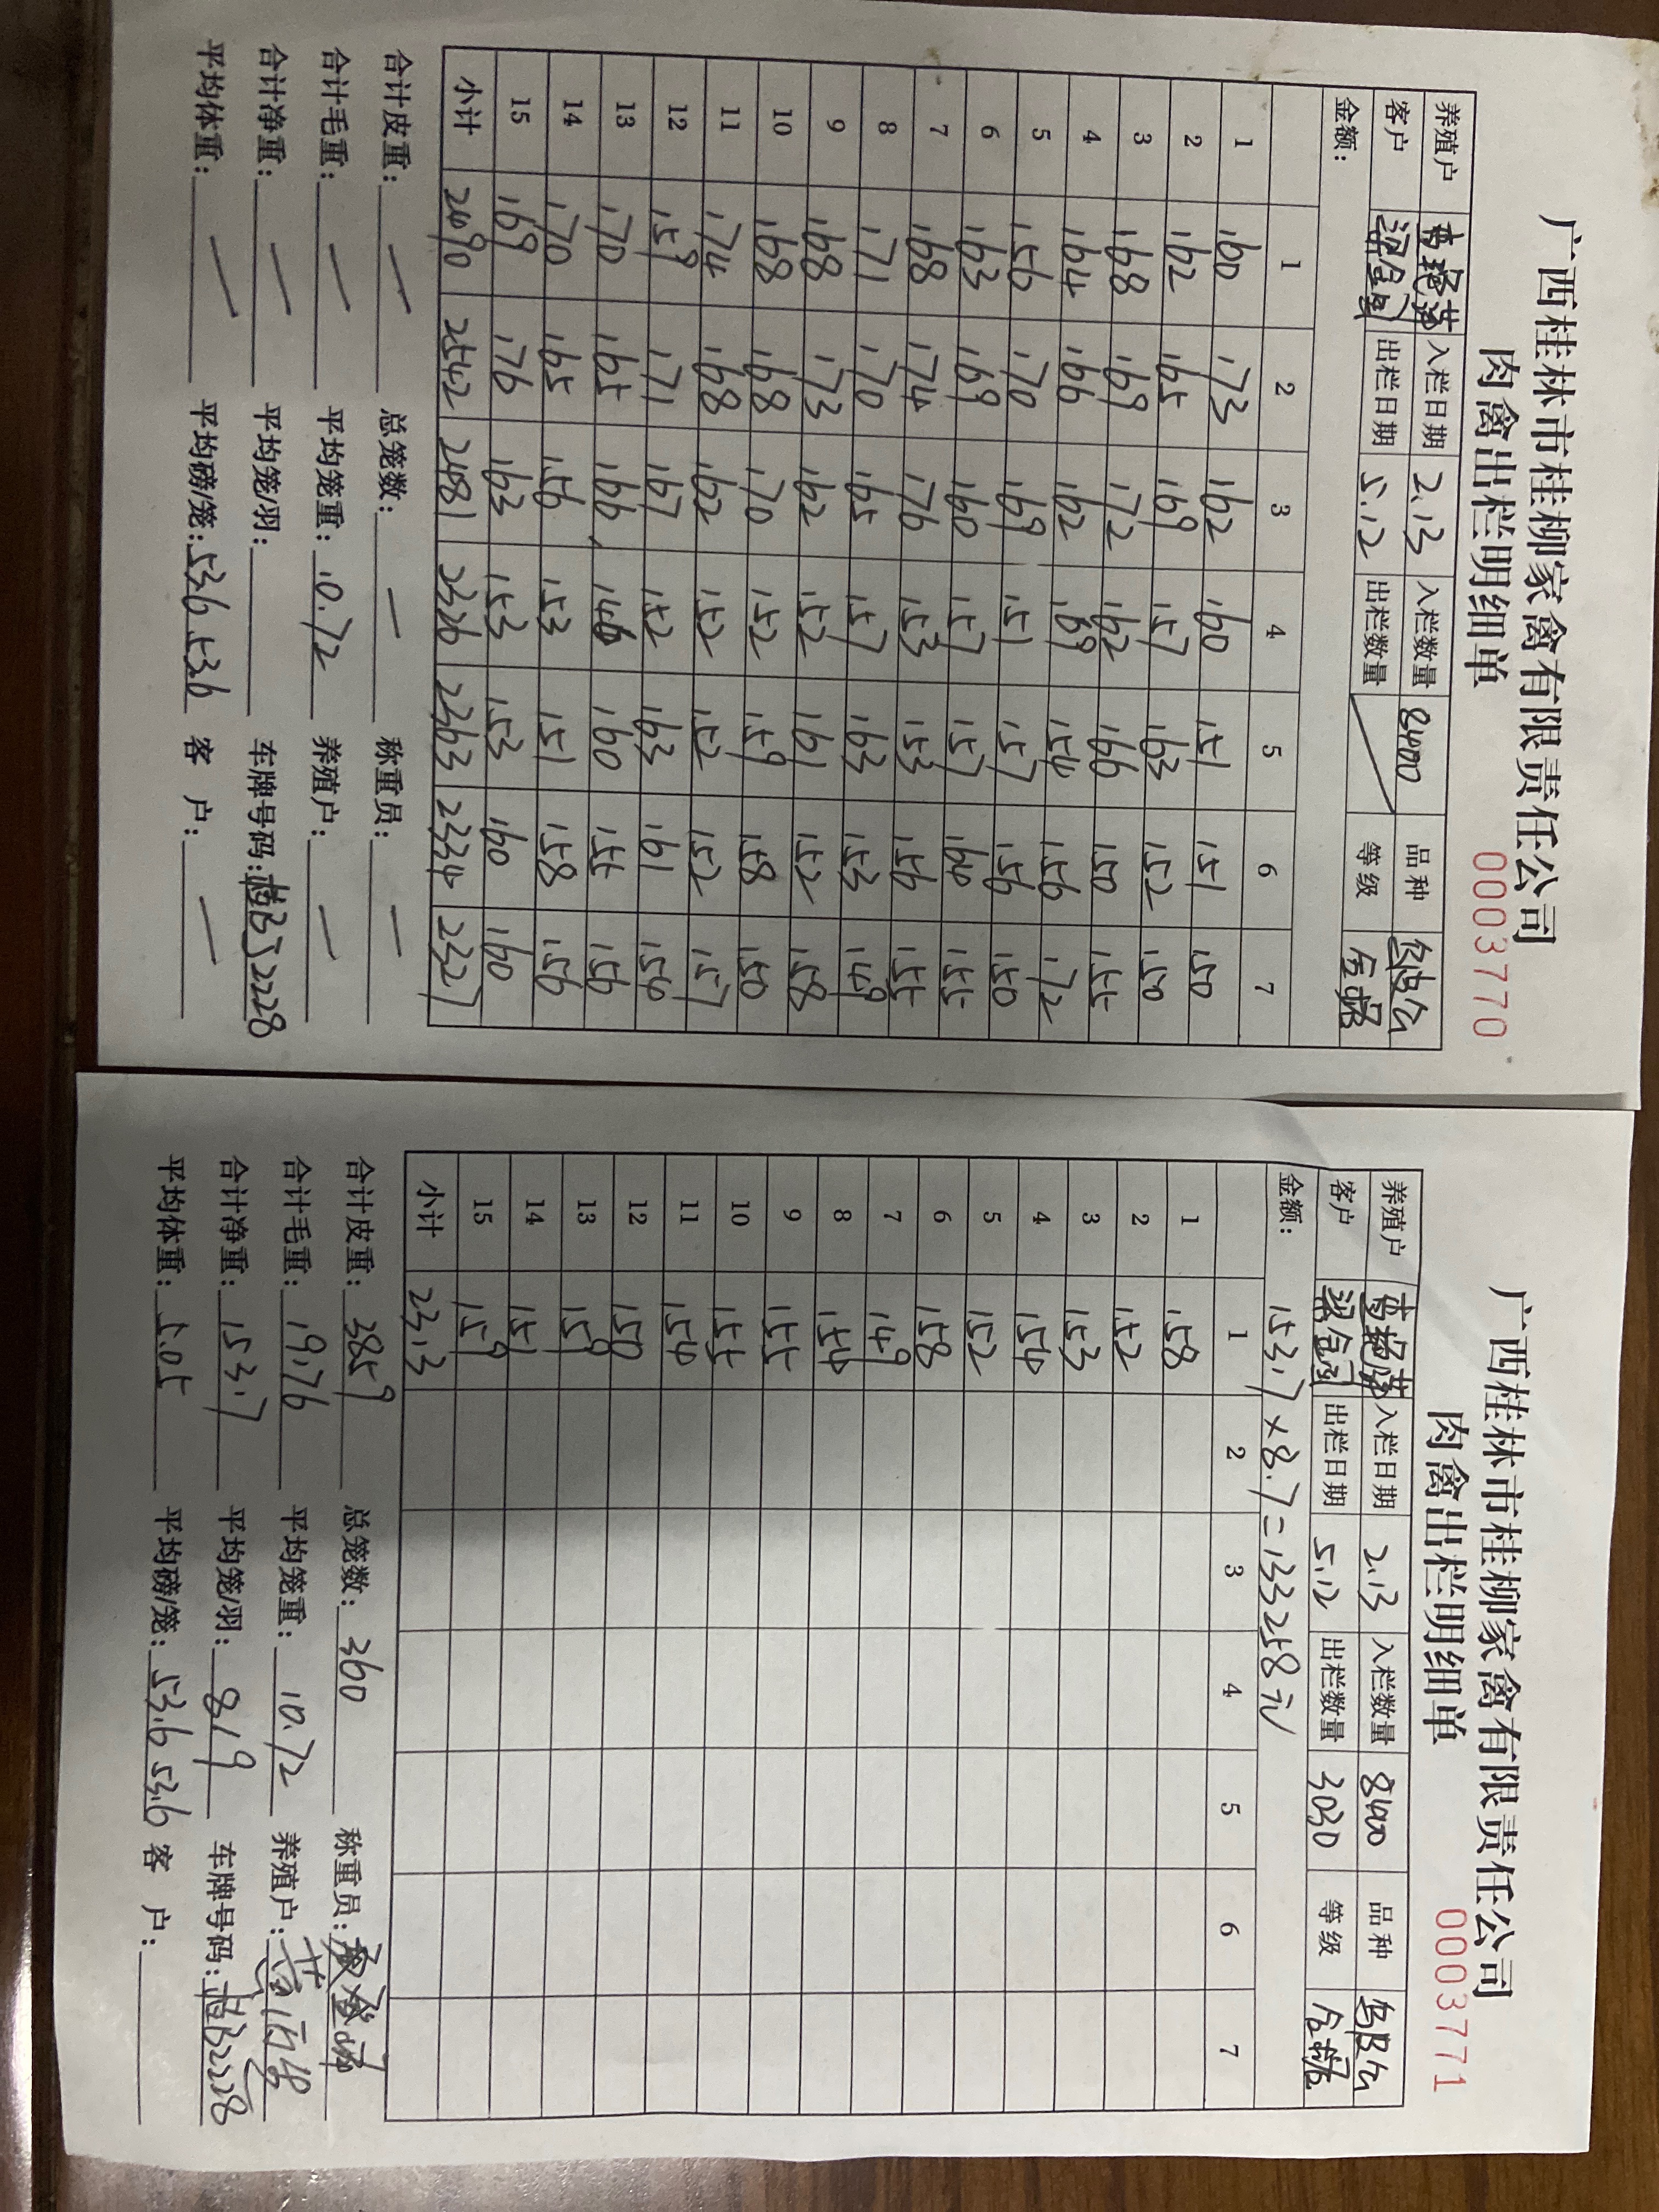 广西桂林市桂柳家禽有限责任公司
肉禽出栏明细单
0003770
养殖户 入栏日期 2.13 入栏数量 8400 品种
客户 出栏日期 5.12 出栏数量 / 等级
金额:
1 2 3 4 5 6 7
1 160 173 162 160 151 151 150
2 162 165 169 157 163 152 150
3 168 169 172 162 166 150 155
4 164 166 162 169 154 156 172
5 156 170 169 151 157 156 150
6 163 169 160 157 157 164 155
7 168 174 176 153 153 156 155
8 171 170 165 157 163 153 149
9 168 173 162 152 161 152 158
10 168 168 170 152 159 158 150
11 174 168 162 152 152 152 157
12 159 171 167 152 163 161 154
13 170 165 166 146 160 155 156
14 170 165 156 153 151 158 156
15 169 176 163 153 153 160 160
小计 2490 2542 2481 2326 2363 2334 2327
合计皮重: — 总笼数: — 称重员: —
合计毛重: — 平均笼重: 10.72 养殖户: —
合计净重: — 平均笼/羽: 车牌号码:
平均体重: — 平均磅/笼: 53.6 53.6 客 户: —
广西桂林市桂柳家禽有限责任公司
肉禽出栏明细单
0003771
养殖户 入栏日期 2.13 入栏数量 8400 品种
客户 出栏日期 5.12 出栏数量 3030 等级
金额: 15317×8.7=133258元
1 2 3 4 5 6 7
1 158
2 152
3 153
4 154
5 152
6 158
7 149
8 154
9 155
10 155
11 154
12 150
13 159
14 151
15 159
小计 2313
合计皮重: 3859 总笼数: 360 称重员:
合计毛重: 19176 平均笼重: 10.72 养殖户:
合计净重: 15317 平均笼/羽: 8/9 车牌号码:
平均体重: 5.05 平均磅/笼: 53.6 53.6 客 户: